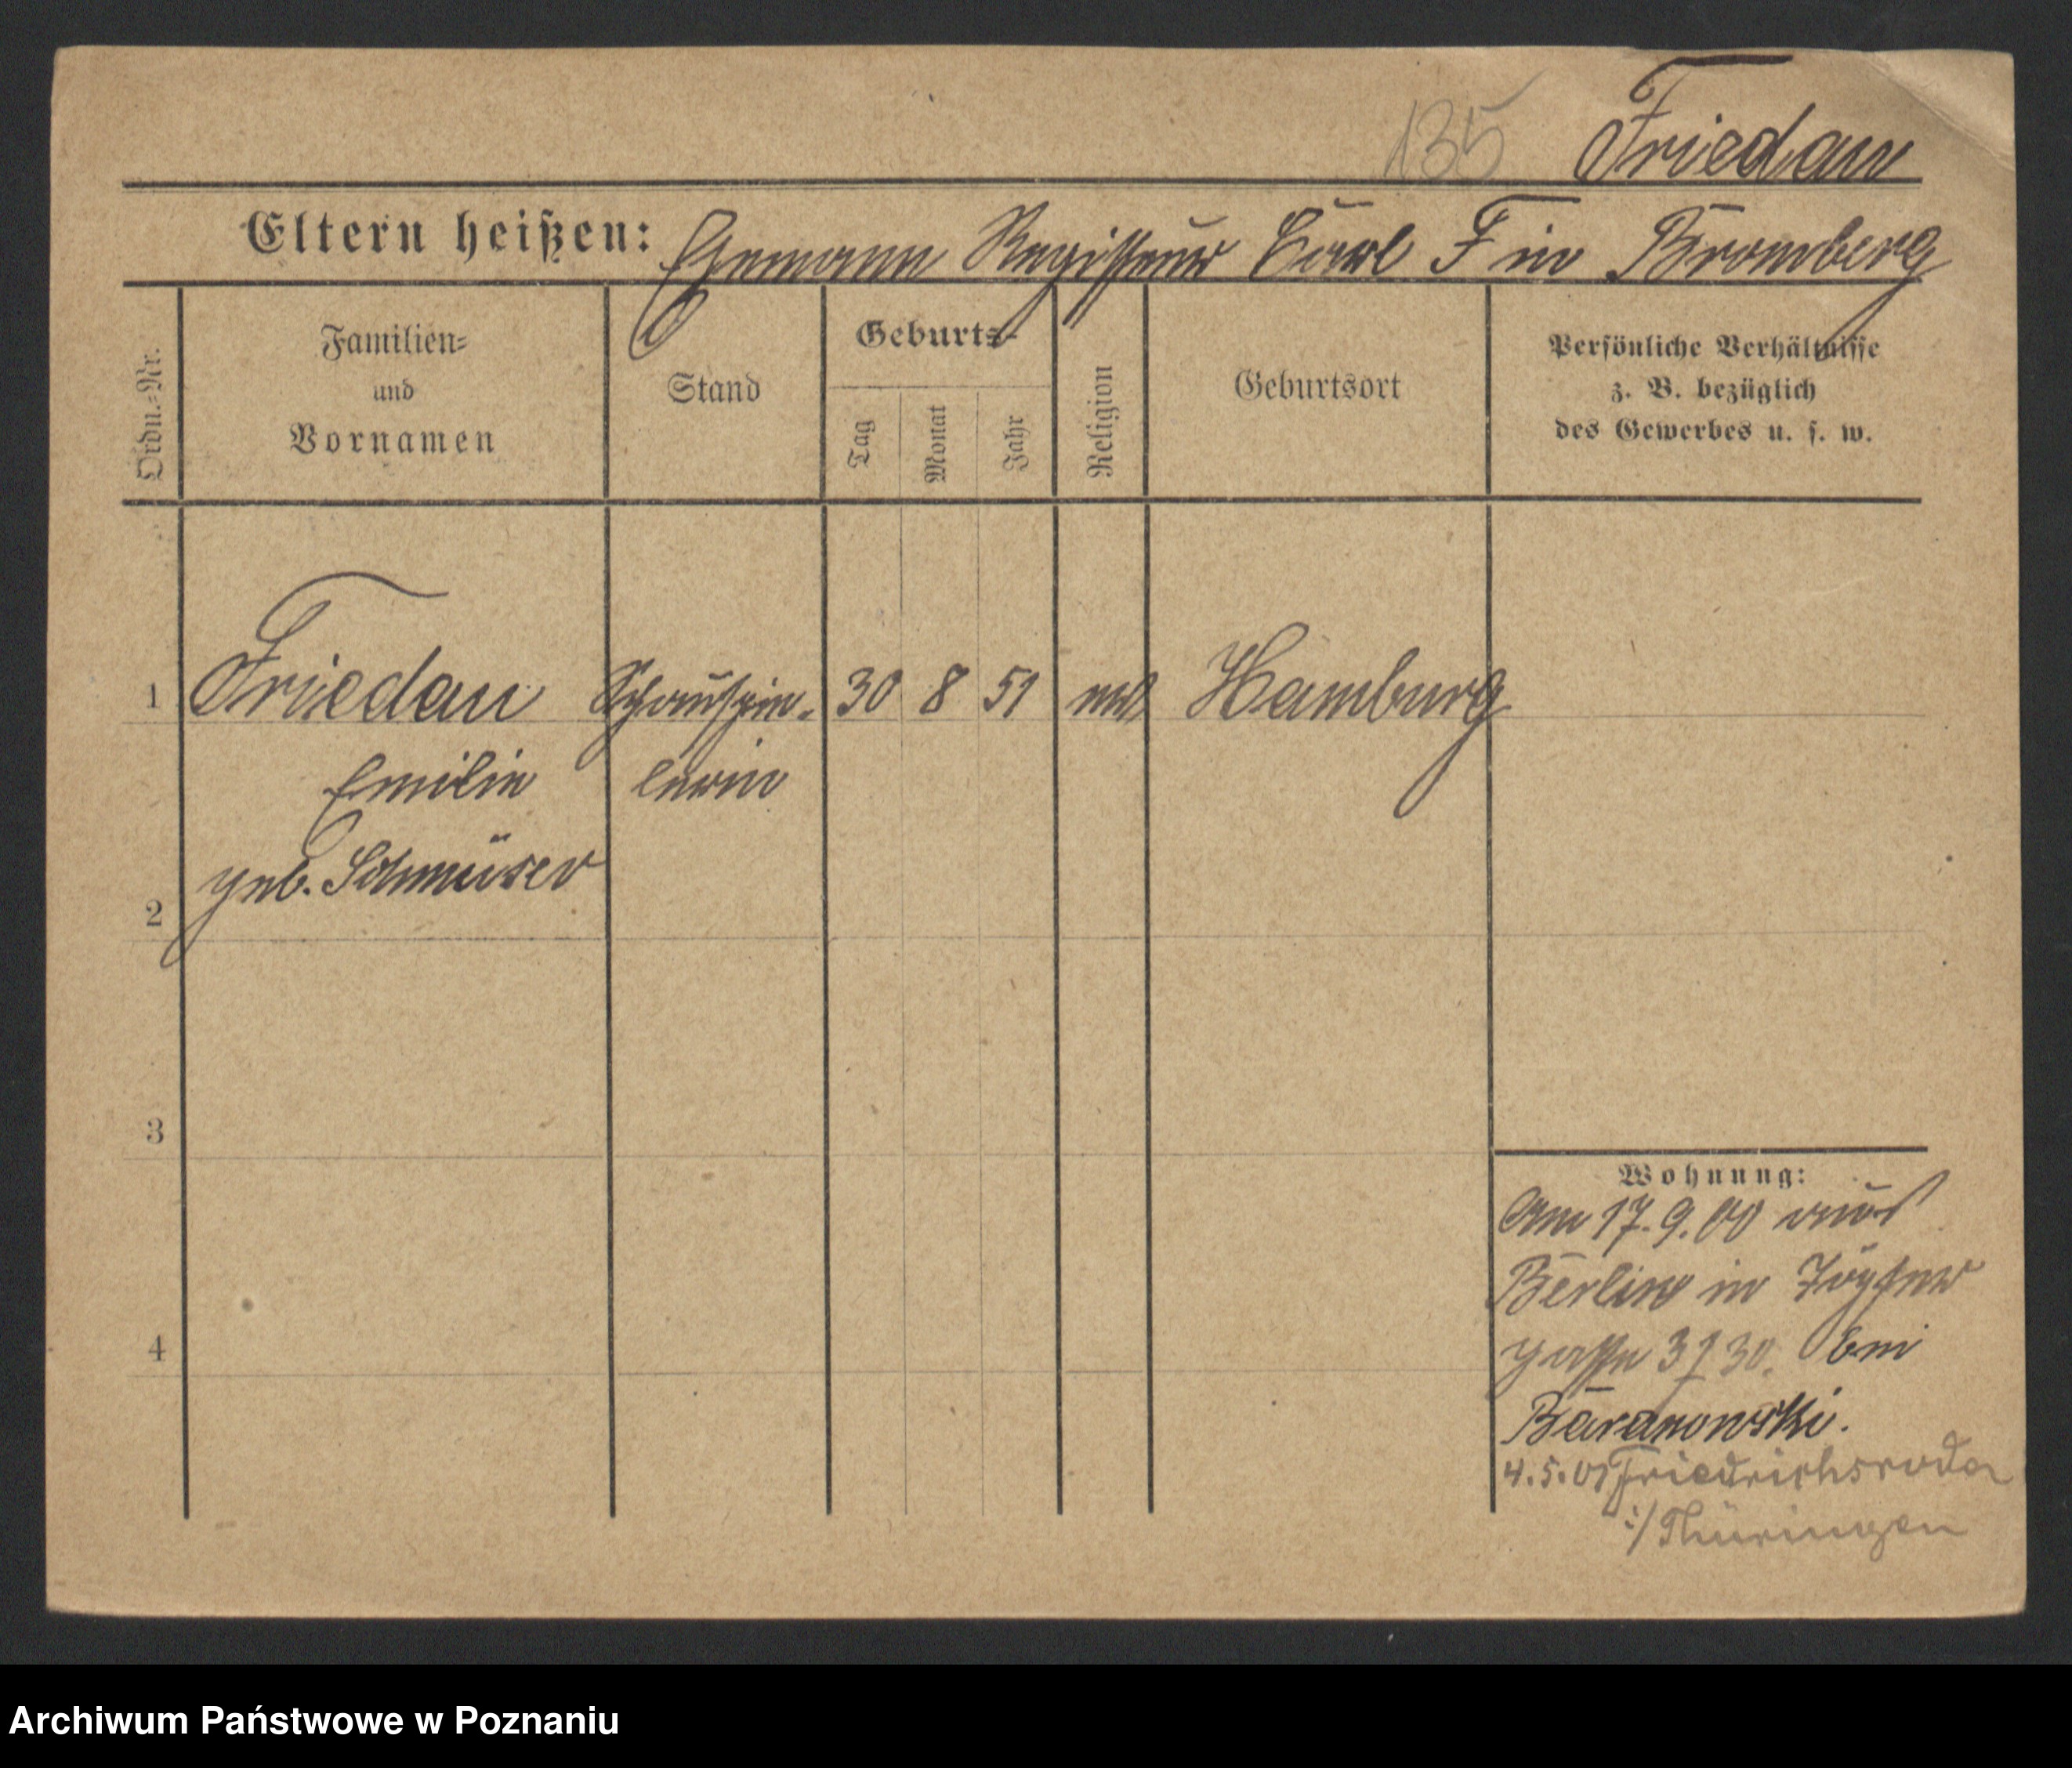 135 Friedau
Eltern heißen: Ehemann Regisseur Carl F in Bromberg
Ordn.-Nr.
Familien-
und
Vornamen
Stand
Geburts-
Tag
Monat
Jahr
Religion
Geburtsort
Persönliche Verhältnisse
z. B. bezüglich
des Gewerbes u. s. w.
1 Friedau Schauspie- 30 8 51 Hamburg
Emilie lerin
geb. Schmüser
2
3
4
Wohnung:
Am 17.9.00 aus
Berlin in Töpfer
gasse 3 bei
Baranowski.
4.5.01 Friedrichsroda
i/Thüringen
Archiwum Państwowe w Poznaniu